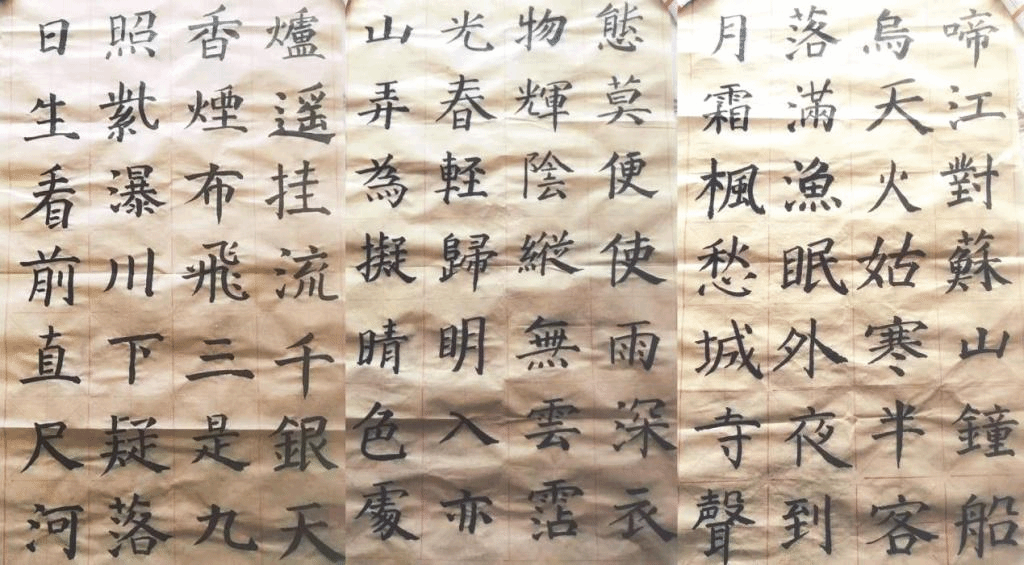 日照香爐
生紫煙遥
看瀑布挂
前川飛流
直下三千
尺疑是銀
河落九天
山光物態
弄春輝莫
為軽陰便
擬歸縱使
晴明無雨
色入雲深
處亦霑衣
月落烏啼
霜滿天江
楓漁火對
愁眠姑蘇
城外寒山
寺夜半鐘
聲到客船